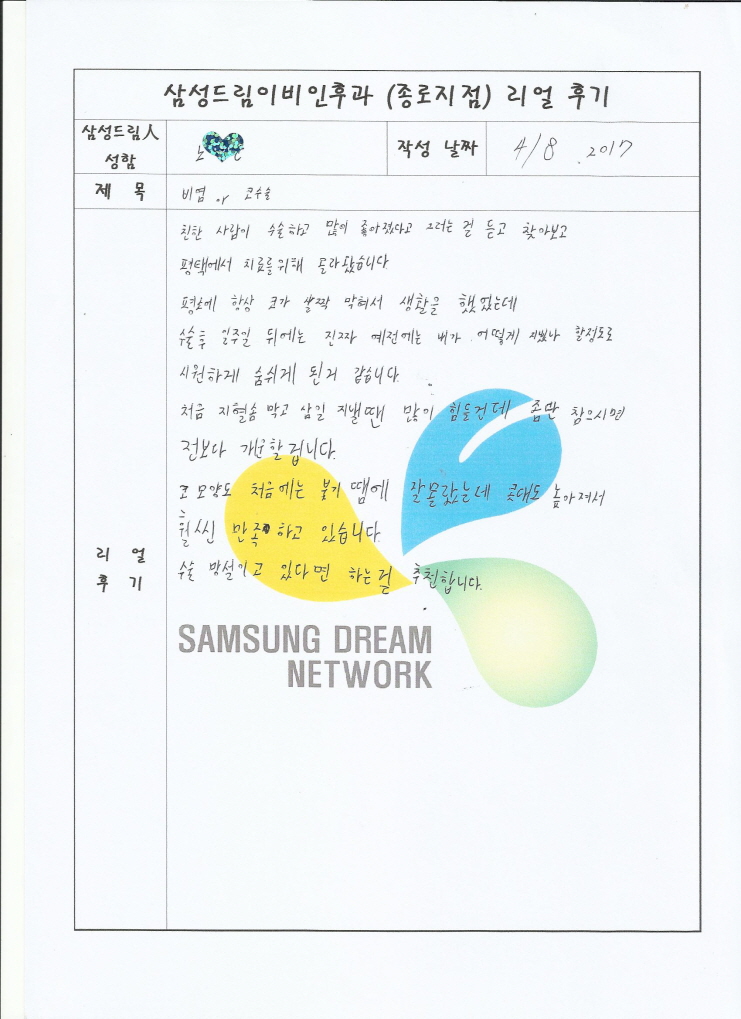 삼성드림이비인후과 (종로지점) 리얼 후기
삼성드림人 성함
작성 날짜 4/8 .2017
제 목 비염 or 코수술
친한 사람이 수술하고 많이 좋아졌다고 그러는 걸 듣고 찾아보고
평택에서 치료를위해 올라왔습니다.
평소에 항상 코가 살짝 막혀서 생활을 했었는데
수술후 일주일 뒤에는 진짜 예전에는 내가 어떻게 지냈나 할정도로
시원하게 숨쉬게 된거 같습니다.
처음 지혈솜 막고 삼일 지낼땐 많이 힘들건데 좀만 참으시면
전보다 개운할 겁니다.
코 모양도 처음에는 붓기 땜에 잘몰랐는데 콧대도 높아져서
훨씬 만족하고 있습니다.
수술 망설이고 있다면 하는걸 추천합니다.
리 얼
후 기
SAMSUNG DREAM
NETWORK